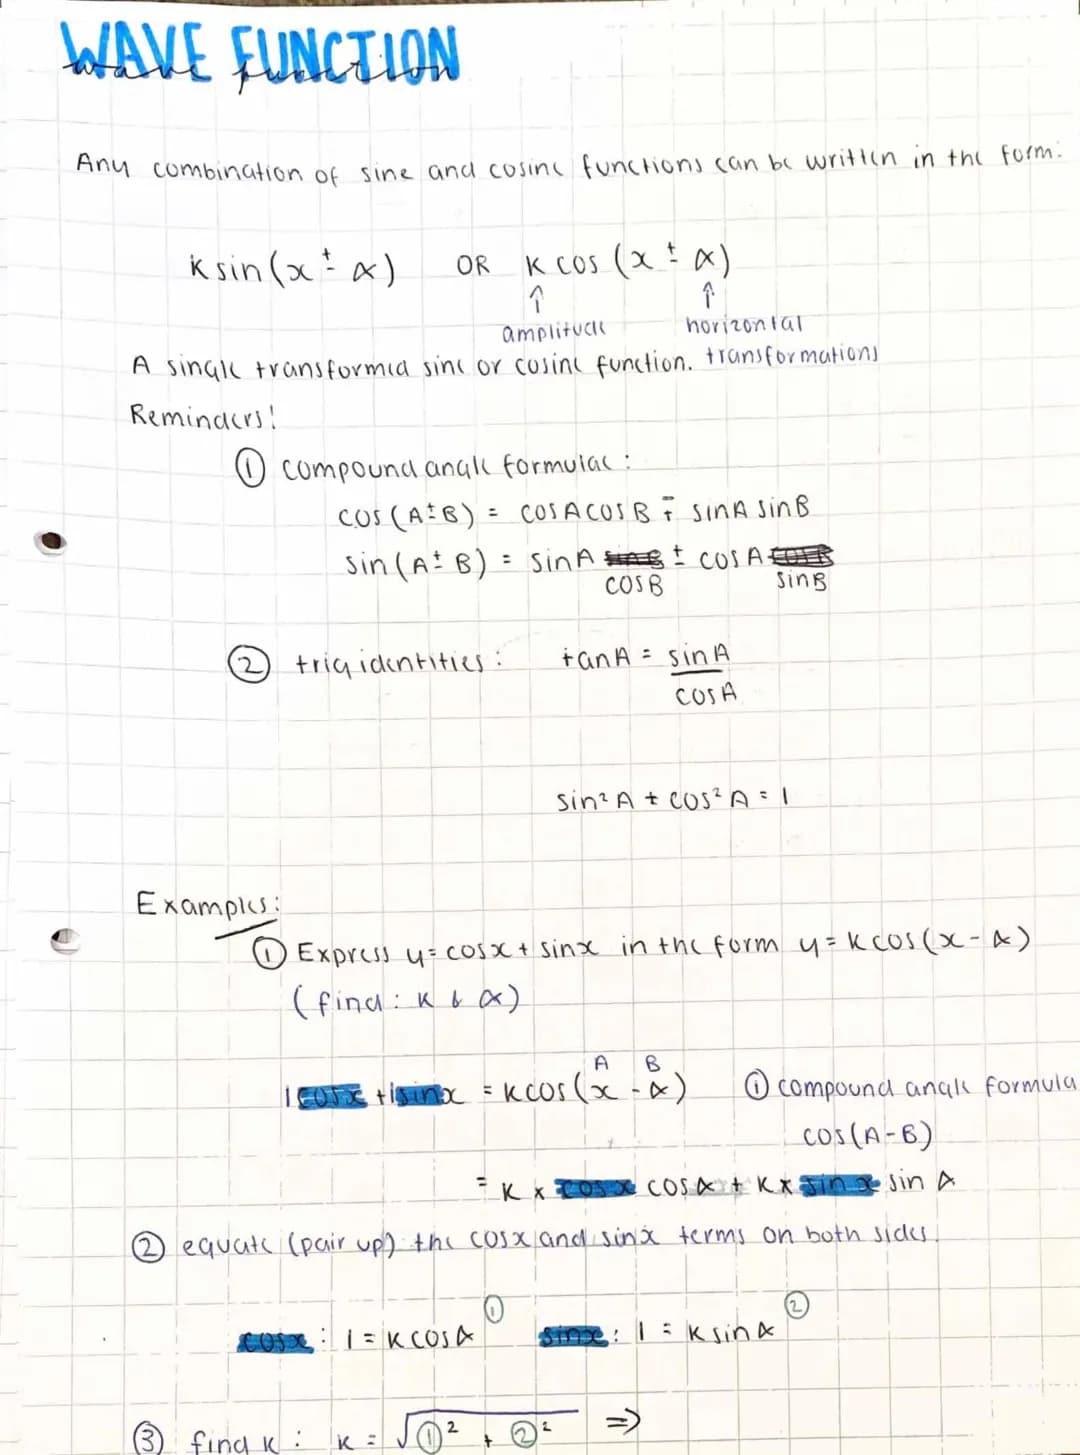 WAVE FUNCTION
wave function
Any combination of sine and cosine functions can be written in the form:
k sin(x ± α) OR k cos(x ± α)
↑ ↑
amplitude horizontal
A single transformed sine or cosine function. transformations
Reminders!
① compound angle formulae:
cos(A±B) = cosAcosB ∓ sinA sinB
sin(A±B) = sinA ± cosA
cosB sinB
② trig identities: tanA = sinA
cosA
sin²A + cos²A = 1
Examples:
① Express y=cosx + sinx in the form y = k cos(x - α)
(find: k & α)
A B
1cosx + 1sinx = kcos(x - α) ① compound angle formula
cos(A-B)
= k × cosx cosα + k × sinx sinα
② equate (pair up) the cosx and sinx terms on both sides.
① ②
cosx: 1 = k cosα sinx: 1 = k sinα
③ find k: k = √①² + ②² ⇒